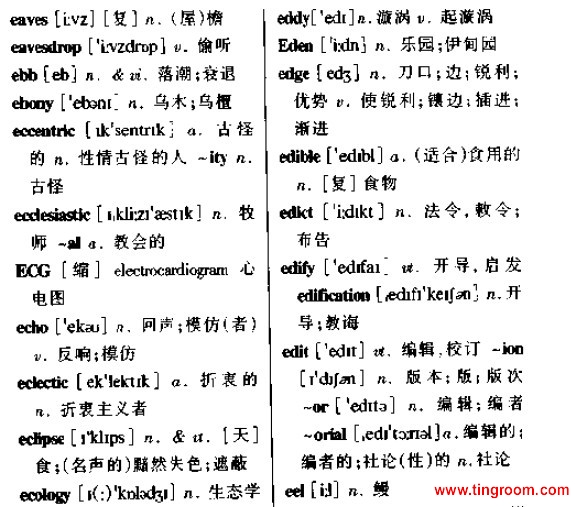 eaves [i:vz] [复] n. (屋)檐
eavesdrop ['i:vzdrɒp] v. 偷听
ebb [eb] n. & vi. 落潮;衰退
ebony ['ebənɪ] n. 乌木;乌檀
eccentric [ɪk'sentrɪk] a. 古怪
的 n. 性情古怪的人 ~ity n.
古怪
ecclesiastic [ɪˌkli:zɪ'æstɪk] n. 牧
师 ~al a. 教会的
ECG [缩] electrocardiogram 心
电图
echo ['ekəʊ] n. 回声;模仿(者)
v. 反响;模仿
eclectic [ek'lektɪk] a. 折衷的
n. 折衷主义者
eclipse [ɪ'klɪps] n. & vt. [天]
食;(名声的)黯然失色;遮蔽
ecology [ɪ(:)'kɒlədʒɪ] n. 生态学
eddy['edɪ]n.漩涡 v. 起漩涡
Eden ['i:dn] n. 乐园;伊甸园
edge [edʒ] n. 刀口;边;锐利;
优势 v. 使锐利;镶边;插进;
渐进
edible ['edɪbl] a. (适合)食用的
n. [复] 食物
edict ['i:dɪkt] n. 法令,敕令;
布告
edify ['edɪfaɪ] vt. 开导,启发
edification [ˌedɪfɪ'keɪʃən] n.开
导;教诲
edit ['edɪt] vt. 编辑,校订 ~ion
[ɪ'dɪʃən] n. 版本;版;版次
~or ['edɪtə] n. 编辑;编者
~orial [ˌedɪ'tɔ:rɪəl]a.编辑的;
编者的;社论(性)的 n.社论
eel [i:l] n. 鳗
www.tingroom.com